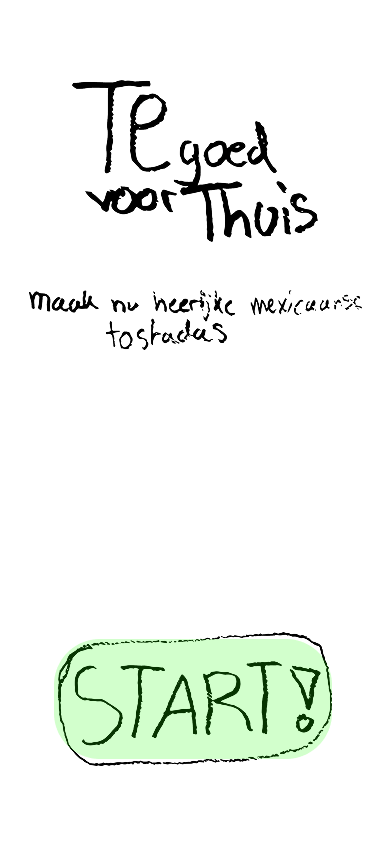 Te goed
voor Thuis
maak nu heerijke mexicaanse
tostadas
START!